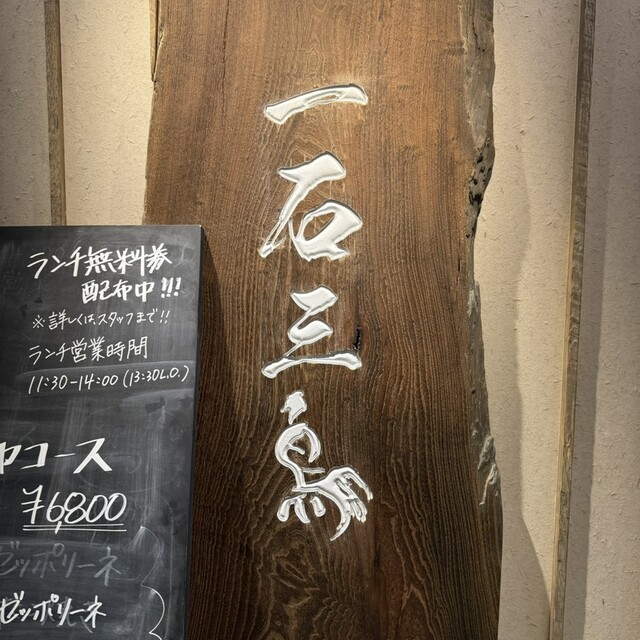 一石三鳥
ランチ無料券
配布中!!!
※詳しくはスタッフまで!!
ランチ営業時間
11:30-14:00(13:30L.O.)
コース
¥6,800
ゼッポリーネ
ゼッポリーネ